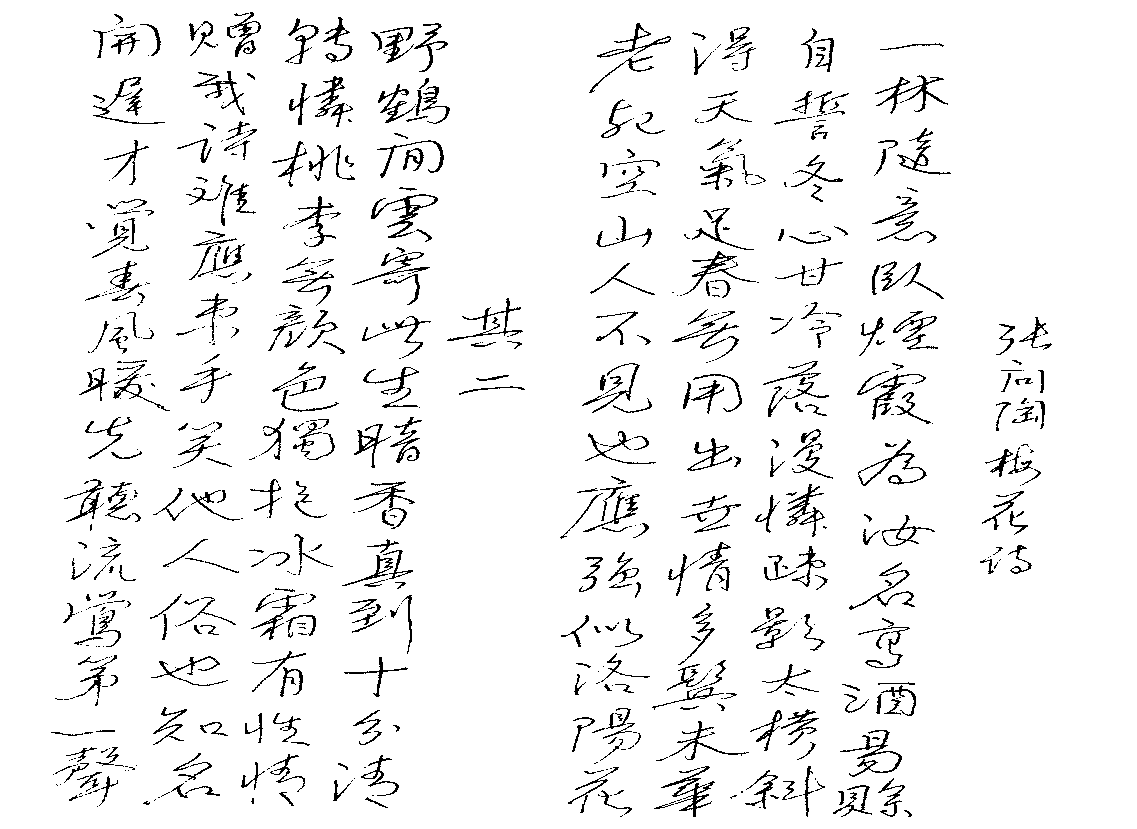 张问陶梅花诗
一林隨意臥煙霞為汝名高酒易賒
自誓冬心甘冷落漫憐疎影太横斜
得天氣足春無用出世情多鬢未華
老死空山人不見也應強似洛陽花
其二
野鶴閒雲寄此生暗香真到十分清
轉憐桃李無顏色獨抱冰霜有性情
贈我詩难應束手笑他人俗也知名
開遲才覺春風暖先聽流鶯第一聲